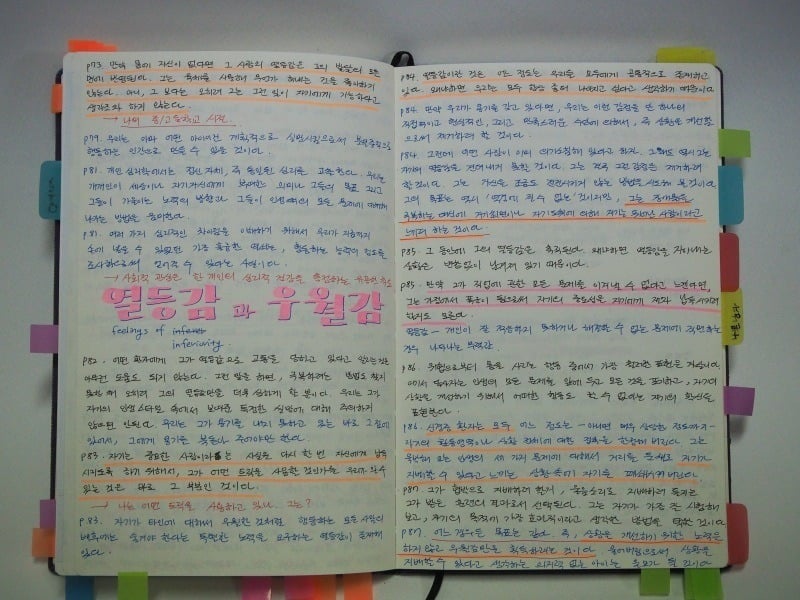 p73. 만약 몸에 자신이 없다면 그 사람의 열등감은 그의 발달의 모든
면에 반영된다. 그는 육체를 사용해 무언가 해내는 것을 좋아하지
않는다. 아니, 그 보다는 오히려 그는 그런 일이 자기에게 가능하다고
생각조차 하지 않는다.
→ 나의 중/고등학교 시절.
p79. 우리는 이와 어떤 아이어떤 계획적으로 실현시킴으로써
행동하는 인간으로 만들 수 있을 것이다.
p81. 개인 심리학에서는 집단 자체, 즉 통일된 심리를 고찰한다. 우리는
개개인이 세상이나 자기자신에게 부여한 의미나 그들의 목표 그리고
그들이 기울이는 노력의 방향과 그들이 인생에서의 모든 문제에 대해
나가는 방법을 음미한다.
p81. 여러 가지 심리적인 차이점을 이해하기 위해서 우리가 지금까지
손에 넣을 수 있었던 가장 훌륭한 열쇠는, 협동하는 능력의 정도를
조사하므로써 얻어질 수 있다는 사실이다.
→ 사회적 관심은 한 개인의 심리적 건강을 측정하는 유용한 척도
열등감 과 우월감
feelings of
inferiority.
p82. 어떤 환자에게 그가 열등감으로 고통을 당하고 있다고 알리는 것은
아무런 도움도 되지 않는다. 그런 말을 하면, 극복하려는 방법도 찾지
못한 채 오히려 그의 열등감만을 더욱 심하게 할 뿐이다. 우리는 그가
자기의 인생 스타일 속에서 보여준 특정한 실망에 대해 주의하지
않으면 안된다. 우리는 그가 용기를 내지 못하고 있는 바로 그 점에
있어서, 그에게 용기를 북돋아 주어야만 한다.
p83. 자기는 중요한 사람이라는 사실을 다시 한 번 자신에게 납득
시키도록 하기 위해서, 그가 어떤 트릭을 사용할 것인가를 우리가 알 수
있는 것은 바로 그 부분인 것이다.
→ 나는 어떤 트릭을 사용하고 있나. 그는?
p83. 자기가 타인에 대해서 우월한 것처럼 행동하는 모든 사람의
배후에는 숨겨야 한다는 특별한 노력을 요구하는 열등감이 존재해
있다.
p84. 열등감이란 것은 어느 정도는 우리들 모두에게 공통적으로 존재하고
있다. 왜냐하면 우리는 모두 항상 좀더 나아지고 싶다고 생각하기 때문이다.
p84. 만약 우리가 용기를 갖고 있다면, 우리는 이런 감정을 단 하나의
직접적이고 현실적인, 그리고 만족스러운 수단에 의해서, 즉 상황을 개선함
으로써 제거하려 할 것이다.
p84. 그런데 어떤 사람이 이미 의기소침해 있다고 하자. 그래도 역시 그는
자기의 열등감을 견뎌내지 못할 것이다. 그는 결국 그런 감정을 제거하려
할 것이다. 그는 자신을 조금도 전진시키지 않는 방법을 시도해 볼 것이다.
그의 목표는 역시 '역경에 질 수 없는' 것이지만, 그는 장애물을
극복하는 대신에 자기최면이나 자기도취에 의해 자기는 뛰어난 사람이라고
느끼려 하는 것이다.
p85. 그 동안에 그의 열등감은 축적된다. 왜냐하면 열등감을 자아내는
상황은 변함없이 남겨져 있기 때문이다.
p85. 만약 그가 직업에 관한 모든 문제를 이겨낼 수 없다고 느낀다면,
그는 가정에서 폭군이 됨으로써 자기의 중요성을 자기에게 재차 납득시키려
할지도 모른다.
열등감 - 개인이 잘 적응하지 못하거나 해결할 수 없는 문제에 직면하는
경우 나타나는 무력감.
p86. 위험으로부터 몸을 사리는 행동 중에서 가장 철저한 표현은 자살이다.
여기서 당사자는 인생의 모든 문제를 앞에 두고 모든 것을 포기하고, 자기의
상황을 개선하기 위해서 어떠한 행동도 할 수 없다는 자기의 확신을
표현한다.
p86. 신경증 환자는 모두 어느 정도는 - 아니면 매우 상당한 정도까지 -
자기의 활동영역이나 상황 전체에 대한 접촉을 한정해 버린다. 그는
직면해 있는 인생의 세 가지 문제에 대해서 거리를 둔 채로 자기가
지배할 수 있다고 느끼는 상황 속에 자기를 폐쇄시켜 버린다.
p87. 그가 협박으로 지배하려 할지, 울음소리로 지배하려 할지는
그가 받은 훈련의 결과로서 선택된다. 그는 자기가 가장 잘 시험해
보고, 자기의 목적에 가장 효과적이라고 생각한 방법을 택할 것이다.
p87. 어느 경우든 목표는 같다. 즉, 상황을 개선하기 위한 노력은
하지 않고 우월감만을 획득하려는 것이다. 울어버림으로써 상황을
지배할 수 있다고 생각하는 의지력 없는 아이는 울보가 될 것이다